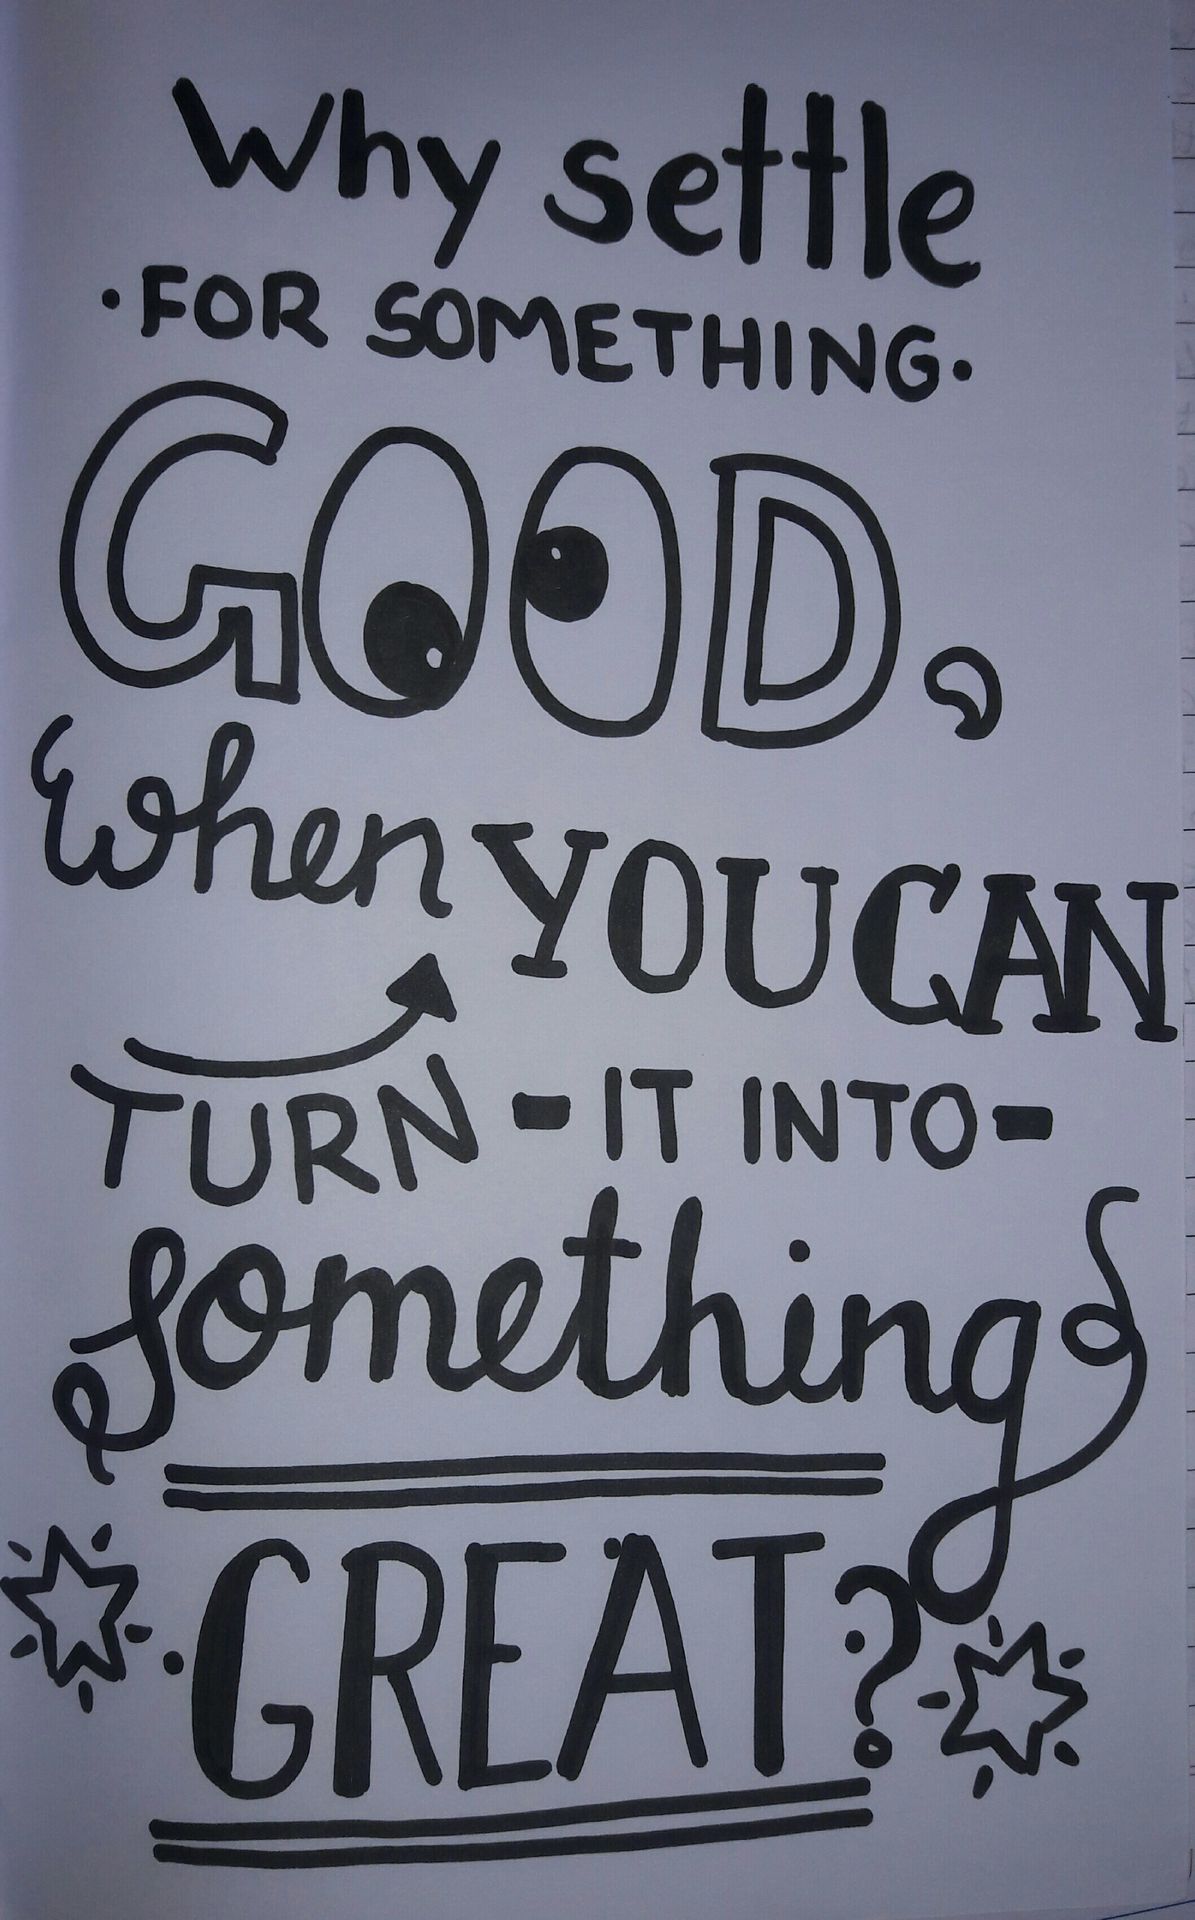 Why settle
·FOR SOMETHING·
GOOD,
When YOU CAN
TURN - IT INTO -
Something
GREAT?